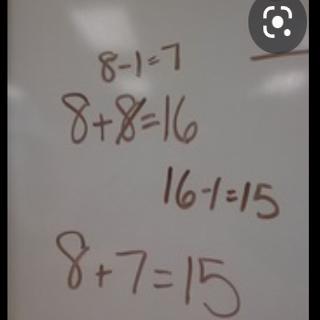 8-1=7
8+8=16
16-1=15
8+7=15